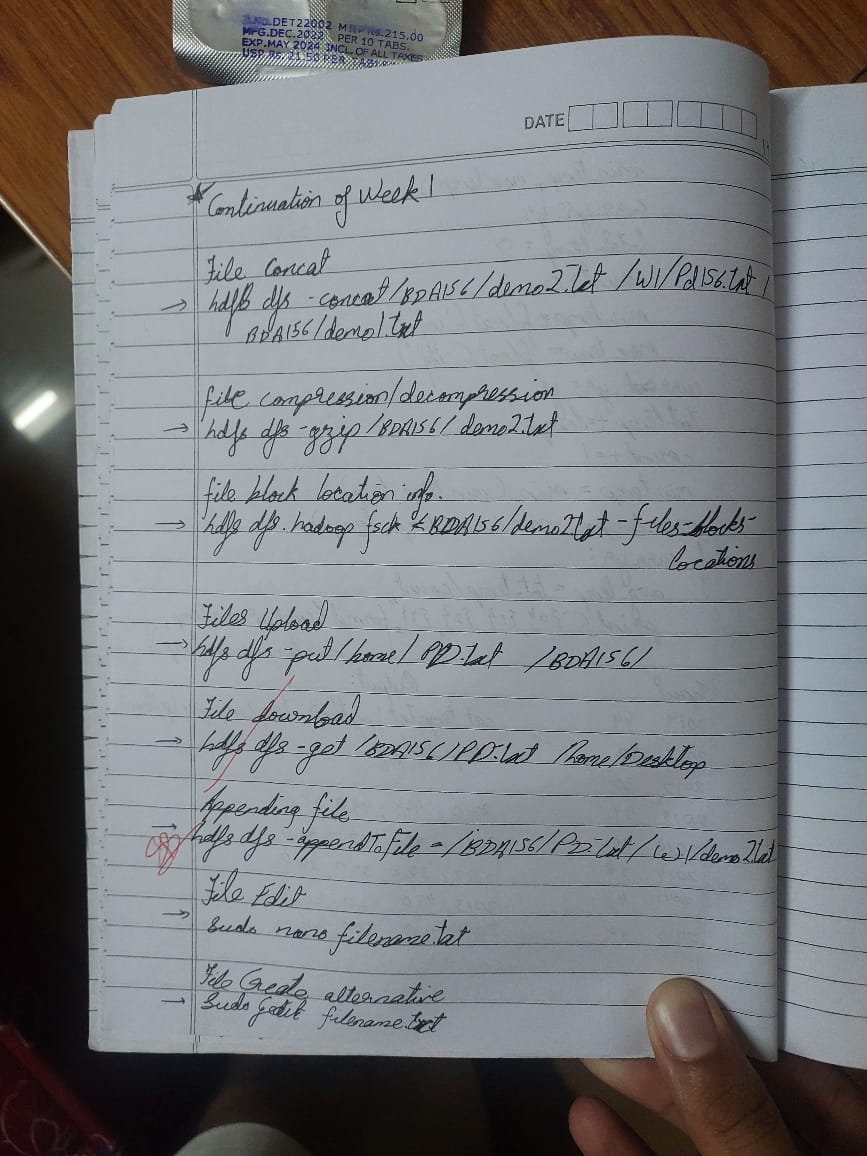 B.NO.DET22002 M.R.P.Rs.215.00
MFG.DEC.2022 PER 10 TABS.
EXP.MAY 2024 INCL.OF ALL TAXES
USP Rs.21.50 PER TAB
DATE
* Continuation of Week 1
File Concat
→ hdfs dfs -concat /BDA156/demo2.txt /W1/Pd156.txt /
BDA156/demo1.txt
file compression/decompression
→ hdfs dfs -gzip /BDA156/demo2.txt
file block location info.
→ hdfs dfs.hadoop fsck /BDA156/demo2.txt -files-blocks-
locations
Files Upload
→ hdfs dfs -put /home/PD.txt /BDA156/
File download
→ hdfs dfs -get /BDA156/PD.txt /home/Desktop
Appending file
→ hdfs dfs -appendToFile - /BDA156/PD.txt /W1/demo2.txt
File Edit
→ Sudo nano filename.txt
File Create alternative
→ Sudo gedit filename.txt